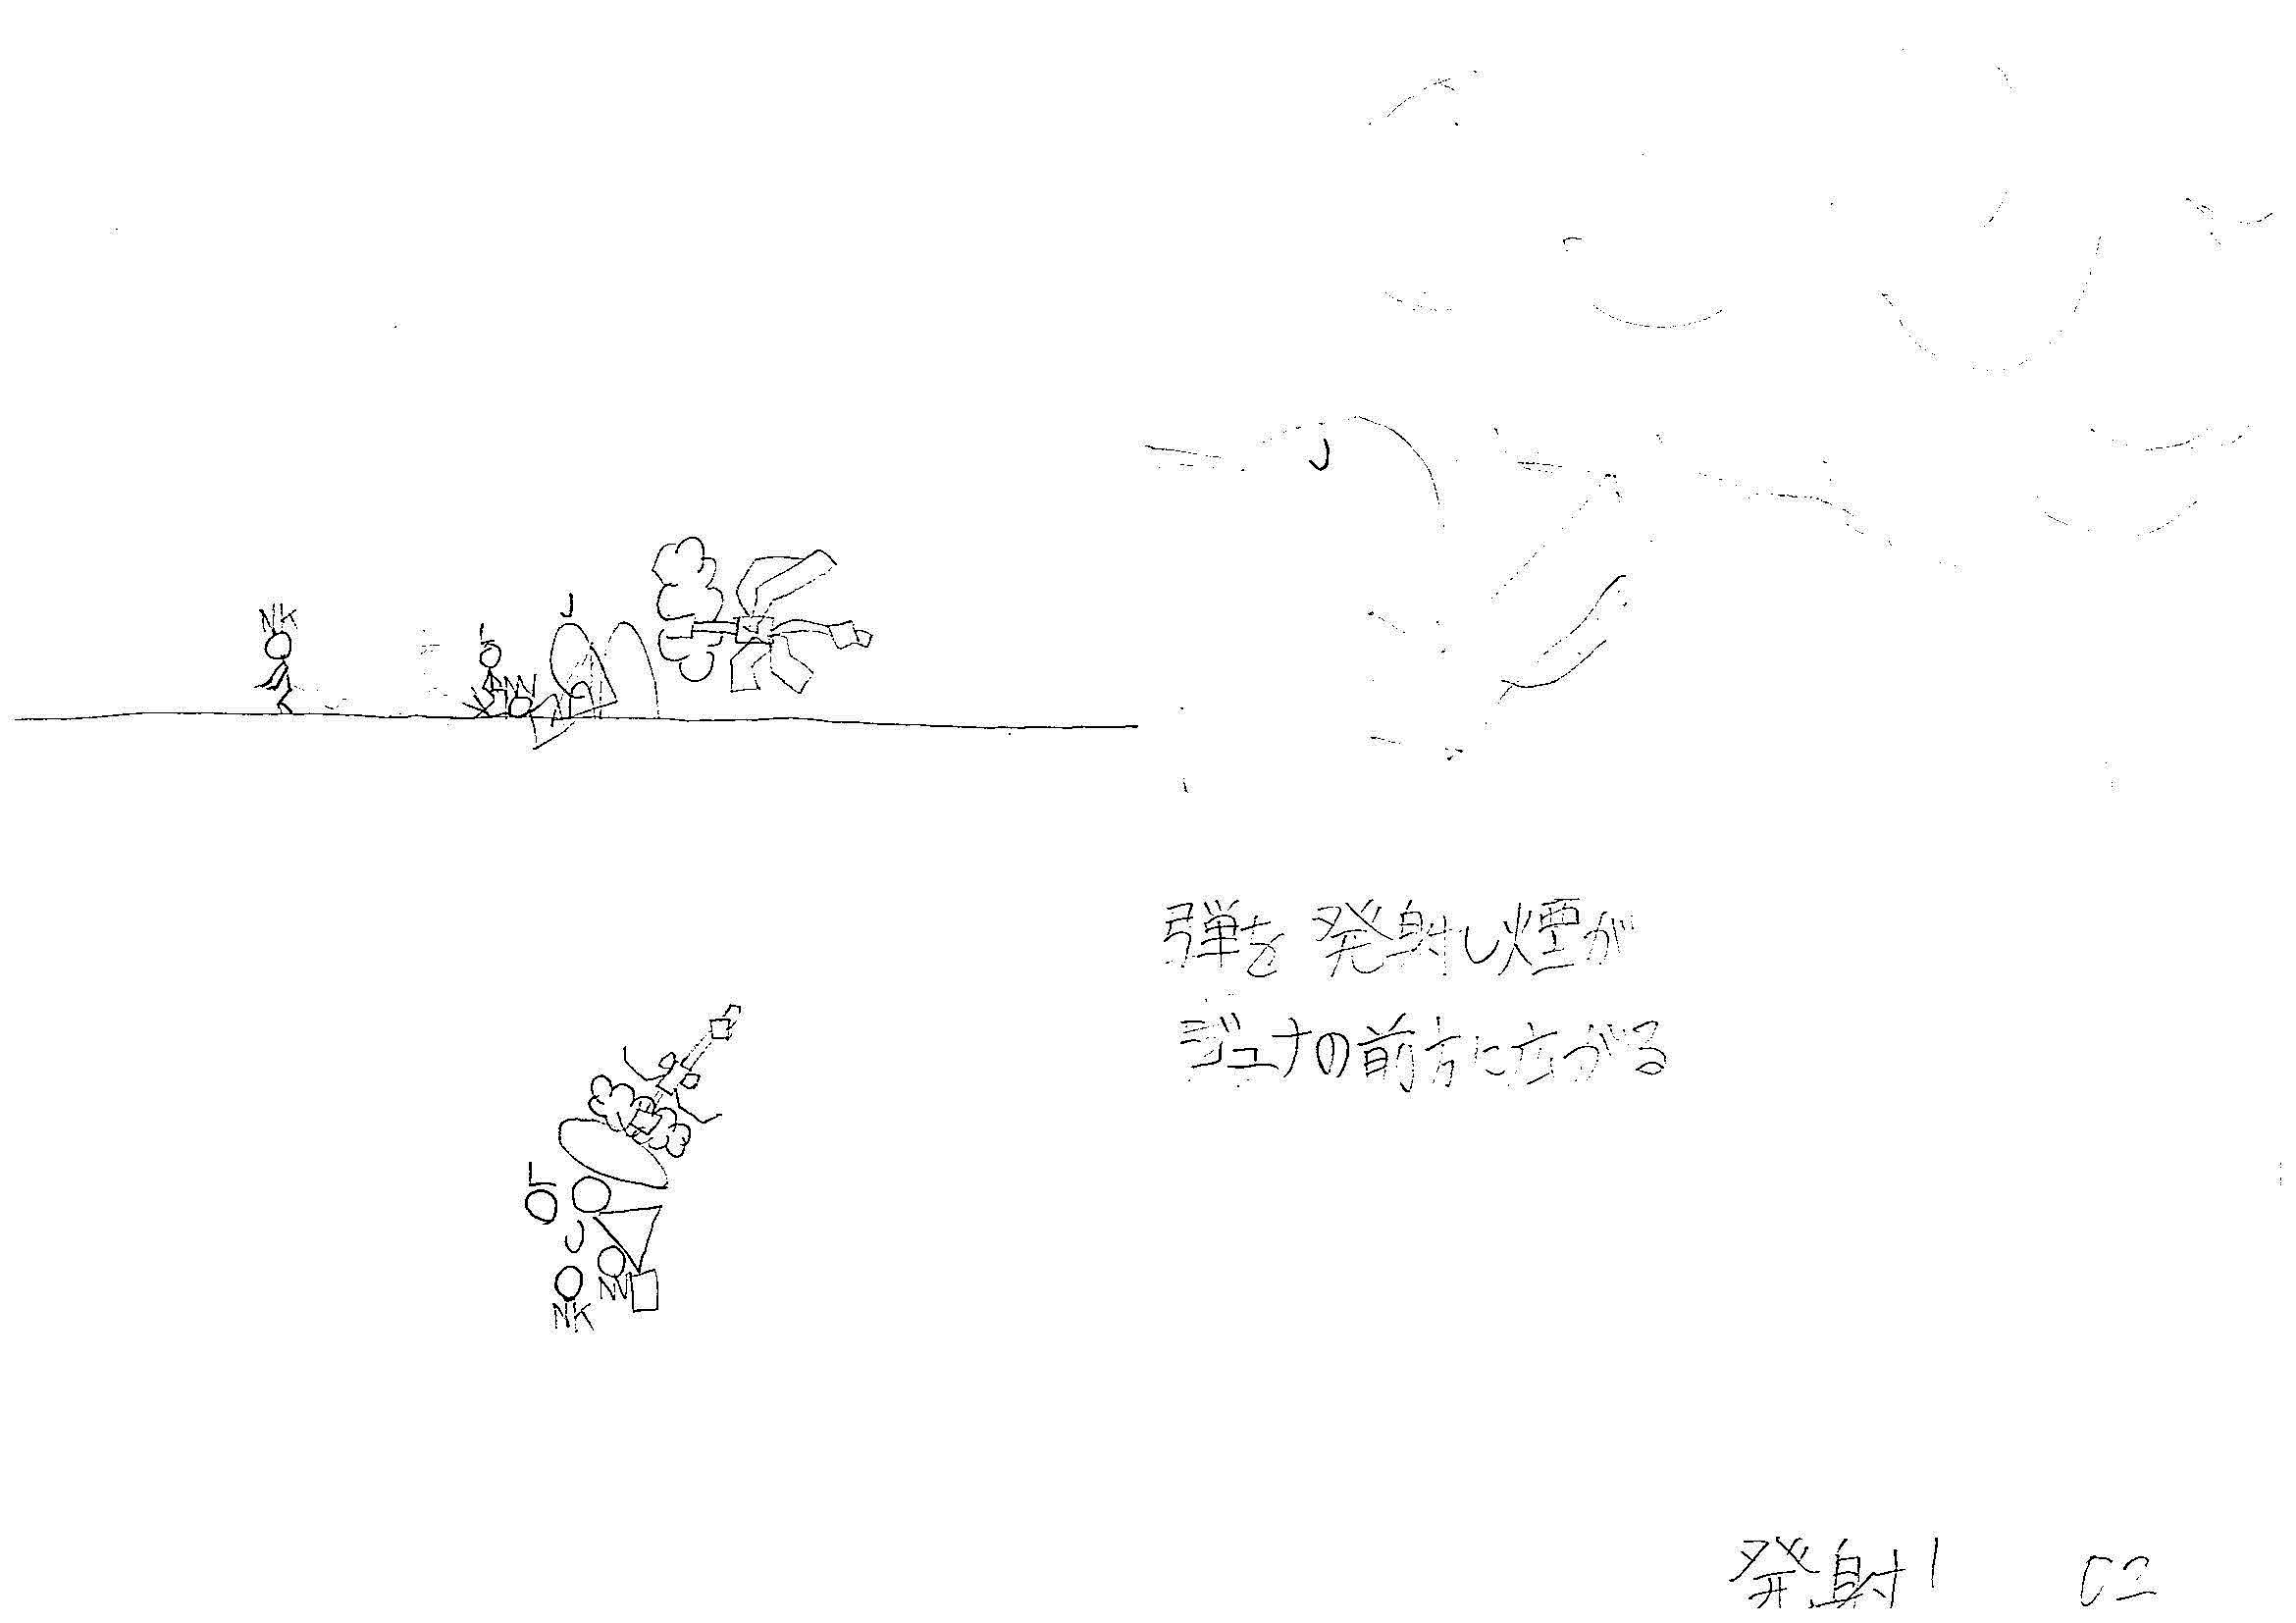 NK
L
J
NN
J
弾を発射し煙が
ジュナの前方に広がる
L
J
NN
NK
発射1 C2